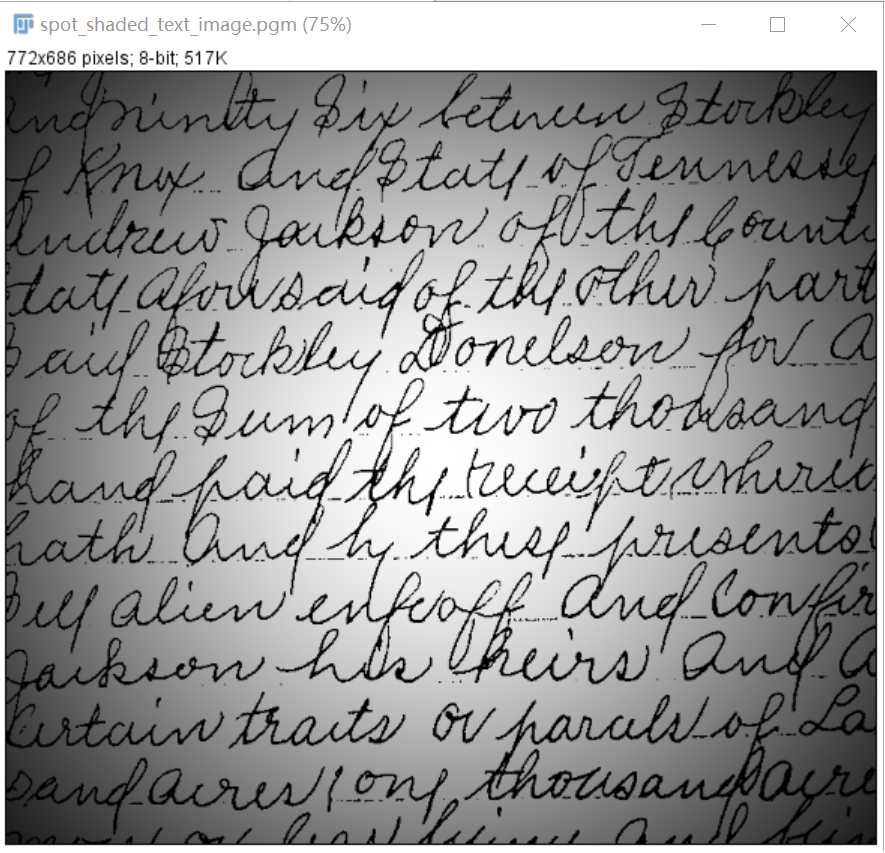 spot_shaded_text_image.pgm (75%)
772x686 pixels; 8-bit; 517K
indninety Six between Stockley
of Knox And State of Tennessey
Andrew Jackson of the County
tate Aforesaid of the other part
Said Stockley Donelson for A
of the Sum of two thousand
hand paid the receipt where
hath And by these presents
Sell alien enfeoff And Confir
Jackson his heirs And A
Certain traits or parcels of La
sand acres one thousand acre